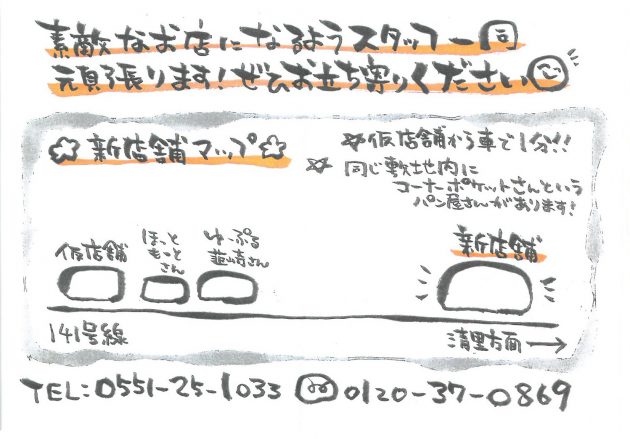 素敵なお店になるようスタッフ一同
頑張ります!ぜひお立ち寄りください
新店舗マップ
☆仮店舗から車で1分!!
☆同じ敷地内に
コーナーポケットさんという
パン屋さんがあります!
仮店舗
ほっと
もっと
さん
ゆーぷる
韮崎さん
新店舗
141号線
清里方面→
TEL:0551-25-1033 0120-37-0869